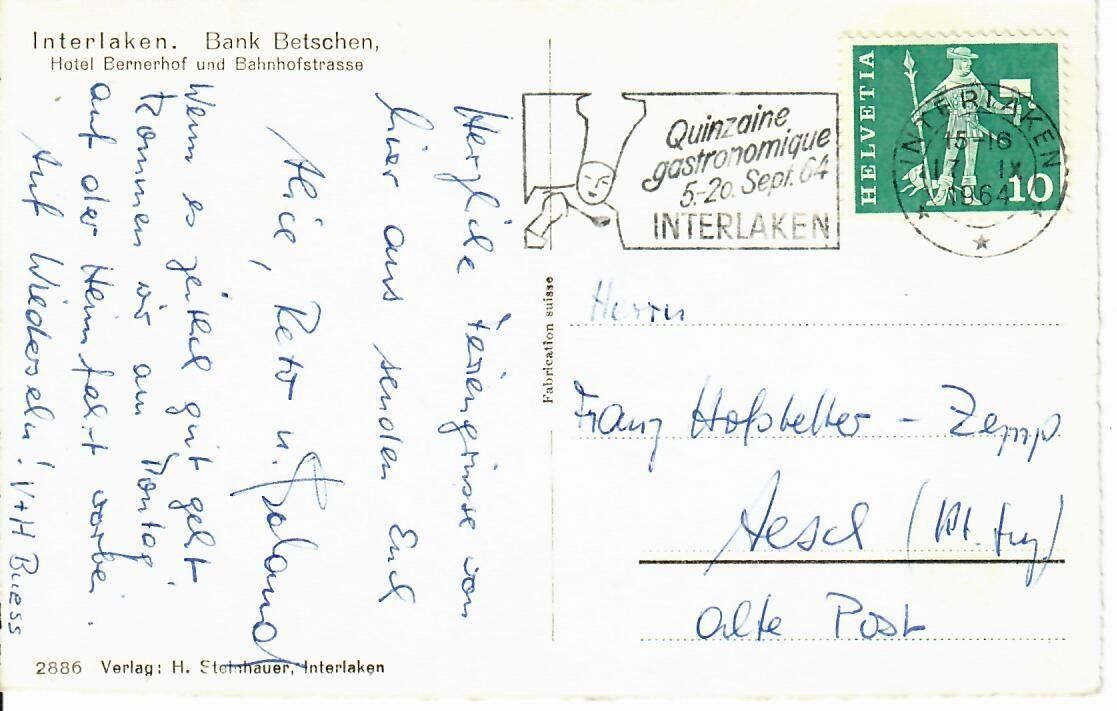 Interlaken. Bank Betschen,
Hotel Bernerhof und Bahnhofstrasse
Herzliche Feriengrüsse von
hier aus senden Euch
Alice, Reto u. Roland
Wenn es zeitlich gut geht
kommen wir am Montag
auf der Heimfahrt vorbei.
Auf Wiedersehn! V+H Buess
2886 Verlag: H. Steinhauer, Interlaken
Fabrication suisse
Quinzaine
gastronomique
5.-20. Sept. 64
INTERLAKEN
HELVETIA
10
INTERLAKEN
15-16
17. IX
1964
Herrn
Franz Hofstetter - Zemp
Aesch (Kt. Luz)
alte Post